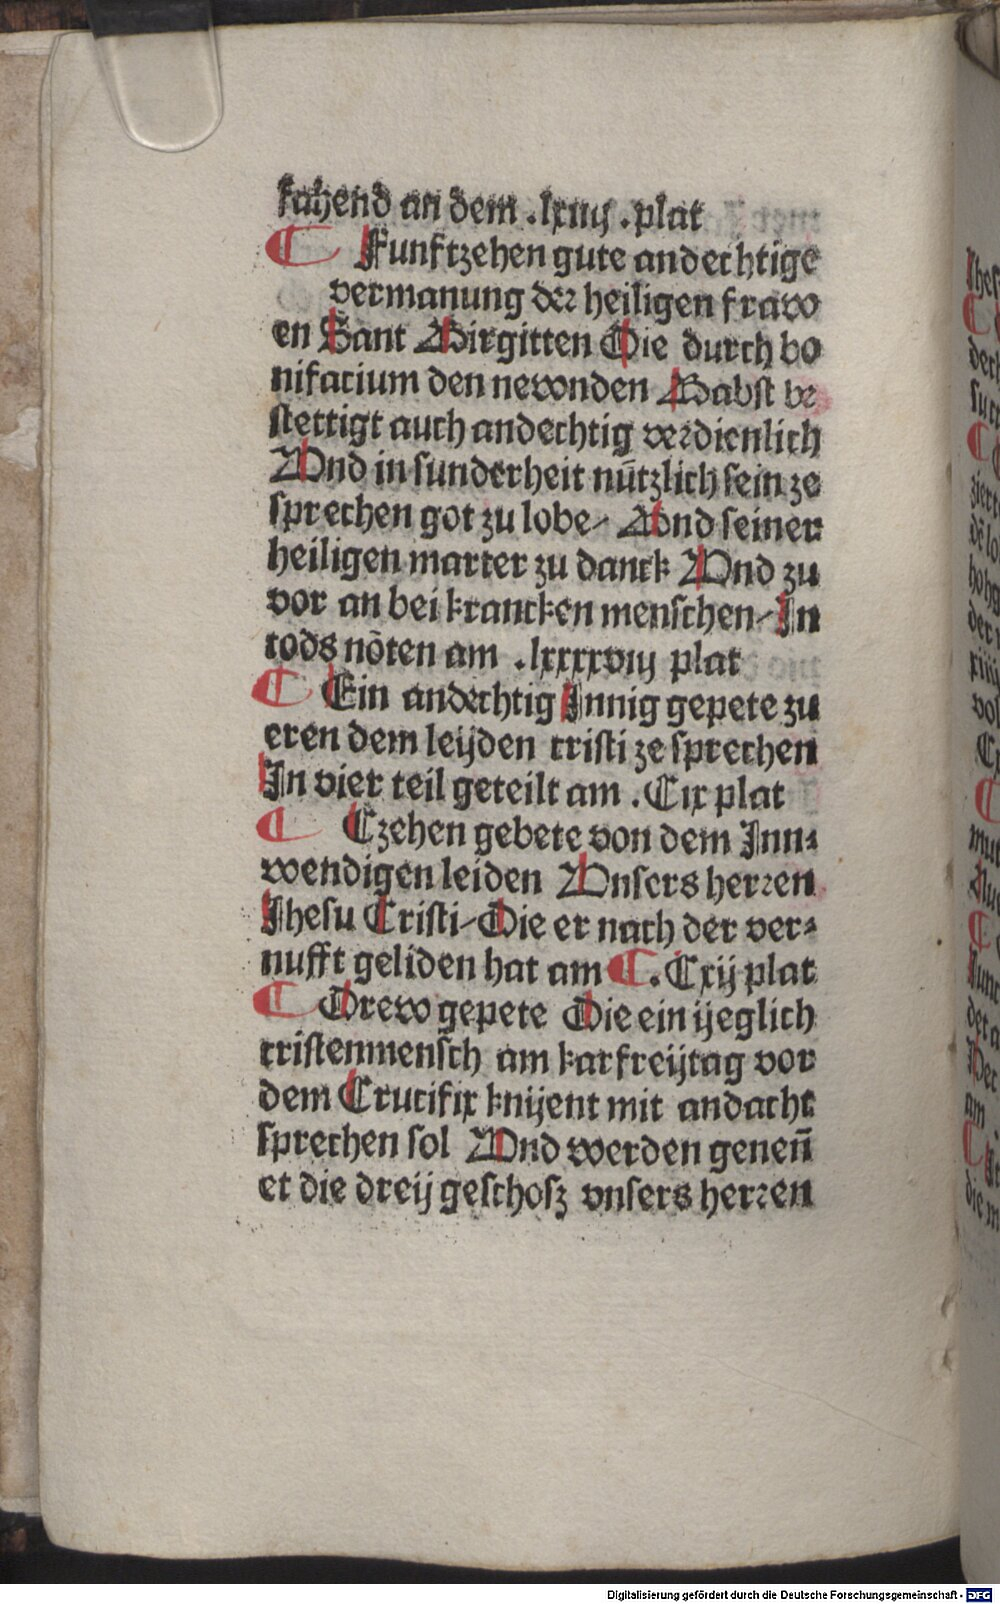 fahend an dem .lxiiij .plat
¶ Funftzehen gute andechtige
vermanung der heiligen fraw
en Sant Birgitten Die durch bo
nifacium den newnden Babst be
stettigt auch andechtig verdienlich
Vnd in sunderheit nūtzlich sein ze
sprechen got zu lobe/ Vnd seiner
heiligen marter zu danck Vnd zu
vor an bei krancken menschen/ In
tods nöten am .lxxxxviij plat
¶ Ein andechtig Innig gepete zu
eren dem leijden cristi ze sprechen
In vier teil geteilt am .Cix plat
¶ Czehen gebete von dem Inn⸗
wendigen leiden Vnsers herren
Jhesu Cristi/ Die er nach der ver⸗
nufft geliden hat am ¶ .Cxij plat
¶ Drew gepete Die ein ijeglich
cristenmensch am karfreijtag vor
dem Crucifix knijent mit andacht
sprechen sol Vnd werden genen̄
et die dreij geschosz vnsers herren
Digitalisierung gefördert durch die Deutsche Forschungsgemeinschaft - DFG